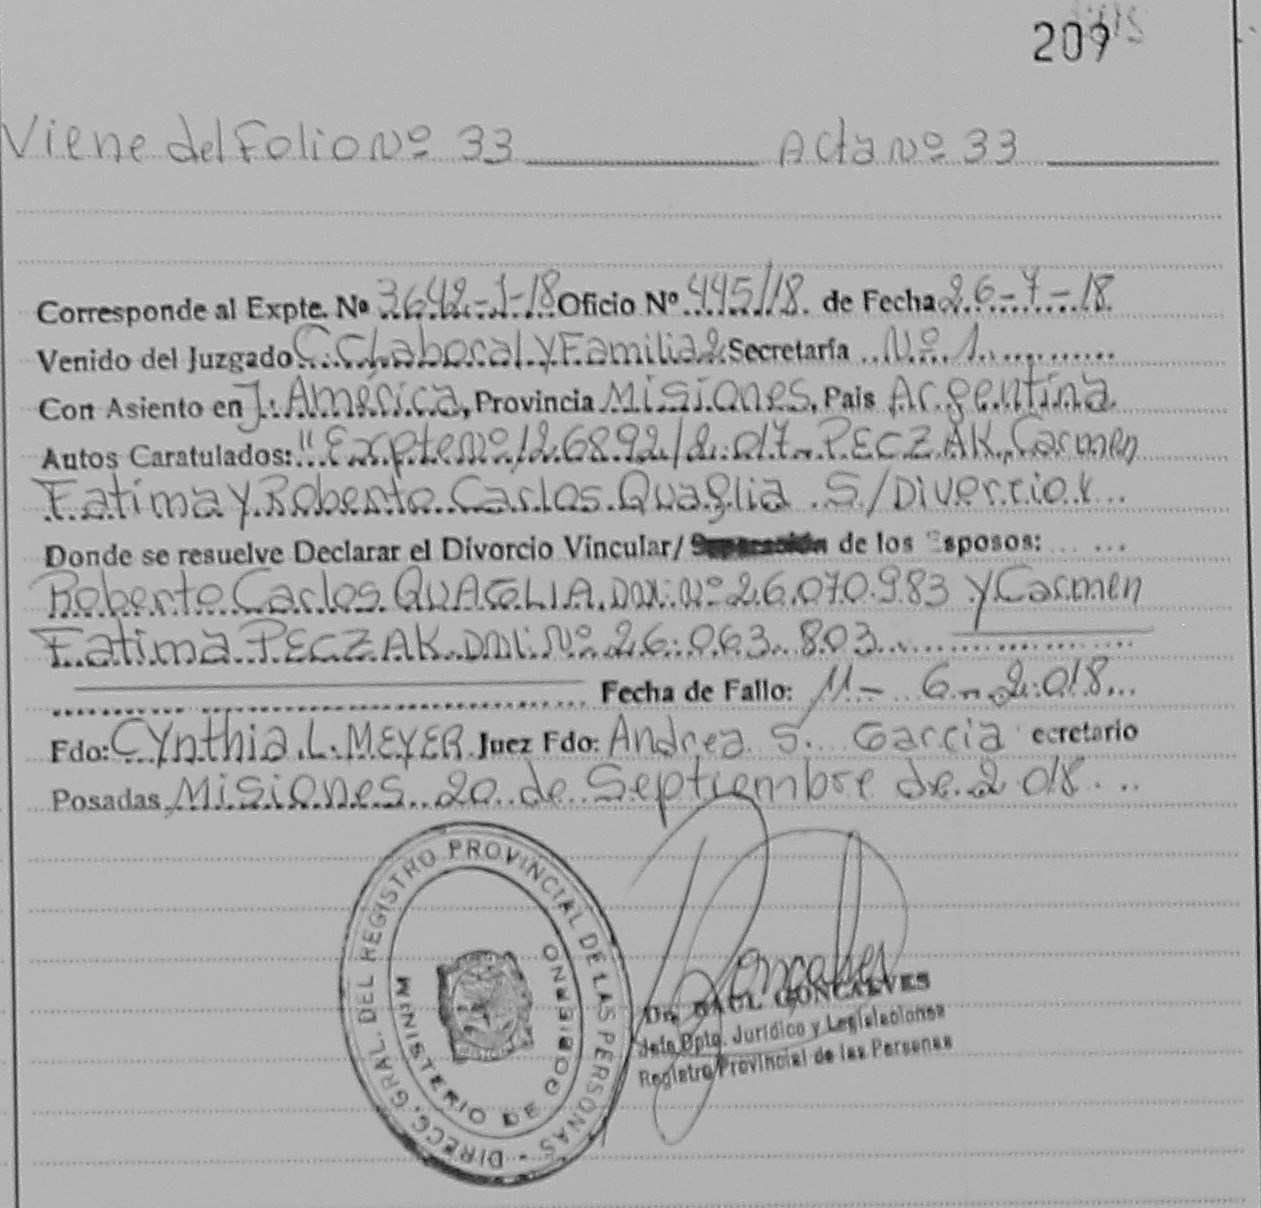 209
Viene del Folio Nº 33 Acta Nº 33
Corresponde al Expte. Nº 3642-J-18 Oficio Nº 445/18 de Fecha 26-7-18
Venido del Juzgado C.C. Laboral y Familia 2 Secretaría Nº 1
Con Asiento en J. América, Provincia Misiones, Pais Argentina
Autos Caratulados: "Expte Nº 126892/2017- PECZAK, Carmen
Fatima y Roberto Carlos Quaglia S/Divorcio
Donde se resuelve Declarar el Divorcio Vincular/ Separación de los Esposos:
Roberto Carlos QUAGLIA DNI: Nº 26.070.983 y Carmen
Fatima PECZAK DNI: Nº 26.063.803
Fecha de Fallo: 11-6-2018
Fdo: Cynthia L. MEYER Juez Fdo: Andrea S. Garcia ecretario
Posadas, Misiones 20 de Septiembre de 2018
DIRECC. GRAL. DEL REGISTRO PROVINCIAL DE LAS PERSONAS
MINISTERIO DE GOBIERNO
Dr. RAUL GONCALVES
Jefe Dpto. Jurídico y Legislaciones
Registro Provincial de las Personas